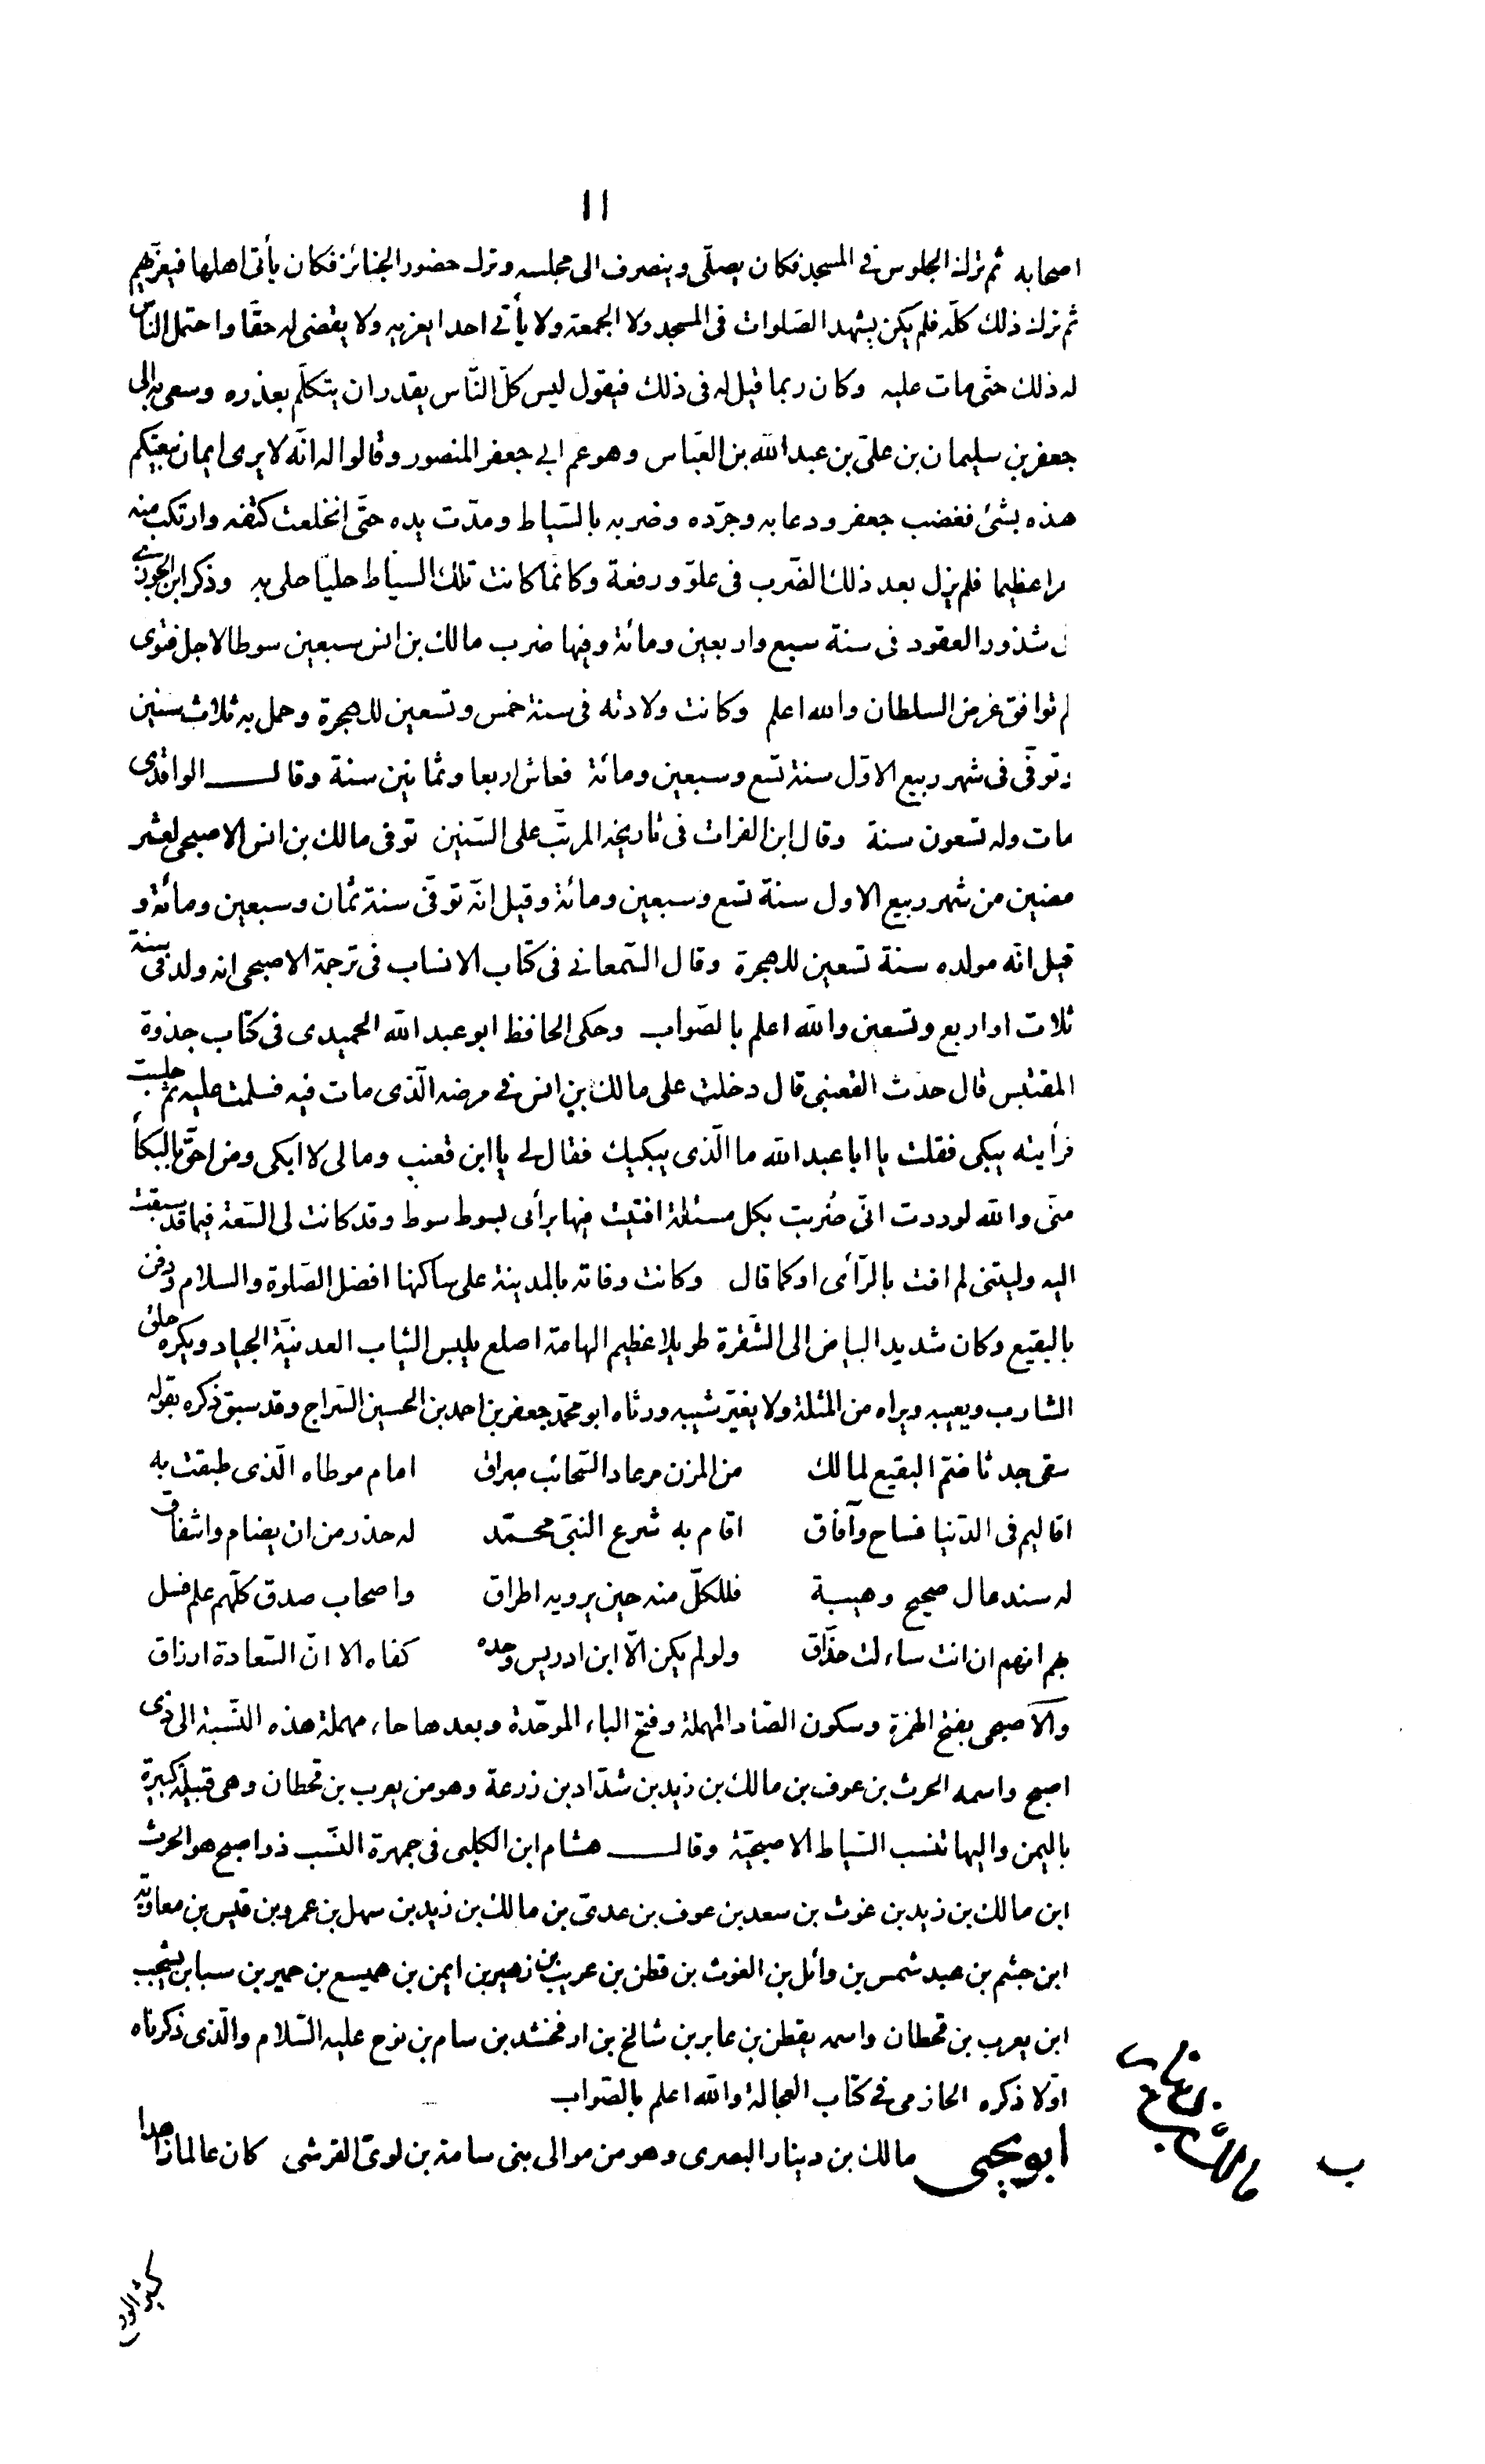 ١١
اصحابه ثم ترك الجلوس فى المسجد فكان يصلّى وينصرف الى مجلسه وترك حضور الجنائز فكان يأتى اهلها فيعزّيهم
ثم ترك ذلك كلّه فلم يكن يشهد الصّلوات فى المسجد ولا الجمعة ولا يأتى احدا يعزيه ولا يقضى له حقّا واحتمل النّاس
له ذلك حتّى مات عليه وكان ربما قيل له فى ذلك فيقول ليس كلّ النّاس يقدر ان يتكلّم بعذره وسعى به الى
جعفر بن سليمان بن علىّ بن عبد الله بن العبّاس وهو عم ابى جعفر المنصور وقالوا له انّه لا يرى ايمان بيعتكم
هذه بشئ فغضب جعفر ودعا به وجرّده وضربه بالسّياط ومدّت يده حتّى انخلعت كتفه وارتكب منه
مرا عظيما فلم يزل بعد ذلك الضّرب فى علوّ ورفعة وكانما كانت تلك السياط حليّا حلى به وذكر ابن الجوزى
فى شذور العقود فى سنة سبع واربعين ومائة وفيها ضرب مالك بن انس سبعين سوطا لاجل فتوى
لم توافق غرض السلطان والله اعلم وكانت ولادته فى سنة خمس وتسعين للهجرة وحمل به ثلاث سنين
وتوفّى فى شهر ربيع الاوّل سنة تسع وسبعين ومائة فعاش اربعا وثمانين سنة وقال الواقدى
مات وله تسعون سنة وقال ابن الفرات فى تاريخه المرتّب على السّنين توفى مالك بن انس الاصبحى لعشر
مضين من شهر ربيع الاول سنة تسع وسبعين ومائة وقيل انّه توفّى سنة ثمان وسبعين ومائة و
قيل انّه مولده سنة تسعين للهجرة وقال السّمعانى فى كتاب الانساب فى ترجمة الاصبحى انه ولد فى سنة
ثلاث او اربع وتسعين والله اعلم بالصّواب وحكى الحافظ ابو عبد الله الحميدى فى كتاب جذوة
المقتبس قال حدث القعنبى قال دخلت على مالك بن انس فى مرضه الّذى مات فيه فسلمت عليه ثم جلست
فرأيته يبكى فقلت يا ابا عبد الله ما الّذى يبكيك فقال لى يا ابن قعنب ومالى لا ابكى ومن احقّ بالبكأ
منّى والله لوددت انّى ضُربت بكل مسئلة افتيت فيها برأى بسوط سوط وقد كانت لى السّعة فيما قد سبقت
اليه وليتنى لم افت بالرّأى او كما قال وكانت وفاته بالمدينة على ساكنها افضل الصّلوة والسلام ودفن
بالبقيع وكان شديد البياض الى الشّقرة طويلا عظيم الهامة اصلع يلبس الثياب العدنيّة الجياد ويكره حلق
الشارب ويعيبه ويراه من المثلة ولا يغيّر شيبه ورثاه ابو محمّد جعفر بن احمد بن الحسين السّراج وقد سبق ذكره بقوله
سقى جدثا ضمّ البقيع لمالك من المزن مرعاد السّحائب مبراق امام موطاه الّذى طبقت به
اقاليم فى الدّنيا فساح وآفاق اقام به شرع النبىّ محمّد له حذر من ان يضام واشفاق
له سند عال صحيح وهيبة فللكلّ منه حين يرويه اطراق واصحاب صدق كلّهم علم فسل
بهم انهم ان انت ساءلت حذّاق ولو لم يكن الّا ابن ادريس وحده كفاه الا انّ السّعادة ارزاق
والاصبحى بفتح الهمزة وسكون الصّاد المهملة وفتح الباء الموحّدة وبعدها حاء مهملة هذه النّسبة الى ذى
اصبح واسمه الحرث بن عوف بن مالك بن زيد بن شدّاد بن زرعة وهو من يعرب بن قحطان وهى قبيلة كبيرة
باليمن واليها تنسب السّياط الاصبحيّة وقال هشام ابن الكلبى فى جمهرة النّسب ذو اصبح هو الحرث
ابن مالك بن زيد بن غوث بن سعد بن عوف بن عدىّ بن مالك بن زيد بن سهل بن عمرو بن قيس بن معاوية
ابن جشم بن عبد شمس بن وائل بن الغوث بن قطن بن عريب بن زهير بن ايمن بن هميسع بن حمير بن سبا بن يشجب
ابن يعرب بن قحطان واسمه يقطن بن عابر بن شالخ بن ارفخشد بن سام بن نوح عليه السّلام والّذى ذكرناه
اوّلا ذكره الحازمى فى كتاب العجالة والله اعلم بالصّواب
ابو يحيى مالك بن دينار البصرى وهو من موالى بنى سامة بن لوىّ القرشى كان عالما زاهدا
ب
مالك بن دينار
كثير الورع